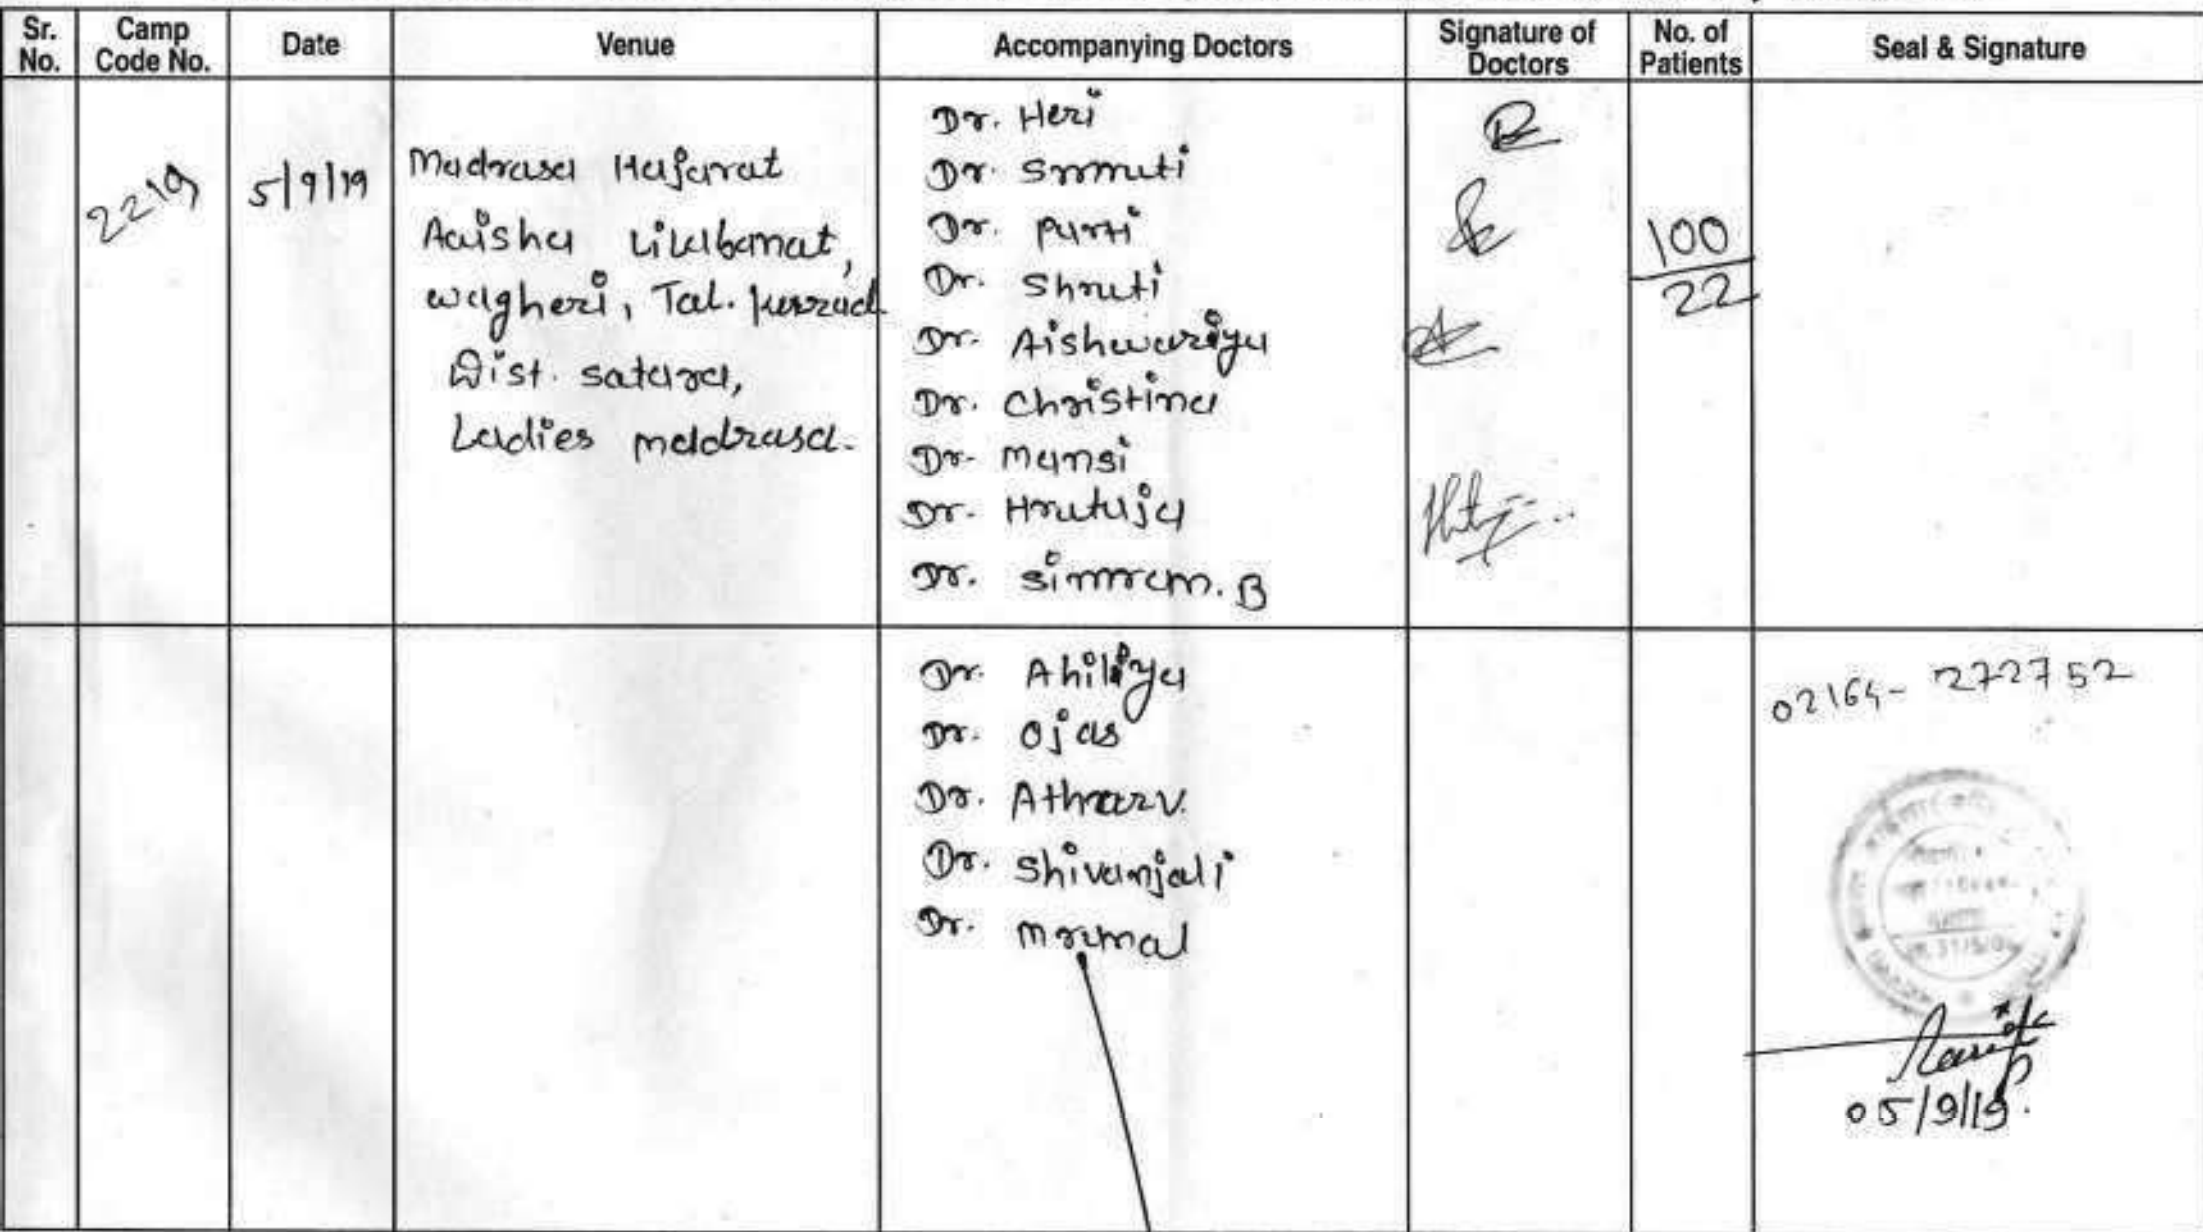 Sr. No.
Camp Code No.
Date
Venue
Accompanying Doctors
Signature of Doctors
No. of Patients
Seal & Signature
2219
5/9/19
Madrasa Hajarat
Aaisha Lilabanat,
wagheri, Tal. karad
Dist. satara,
Ladies madrasa.
Dr. Heri
Dr. Smruti
Dr. Purti
Dr. Shruti
Dr. Aishwariya
Dr. Christina
Dr. Mansi
Dr. Hrutuja
Dr. Simran. B
100
22
Dr. Ahiliya
Dr. Ojas
Dr. Atharv.
Dr. Shivanjali
Dr. Mrunal
02164- 272752
05/9/19.